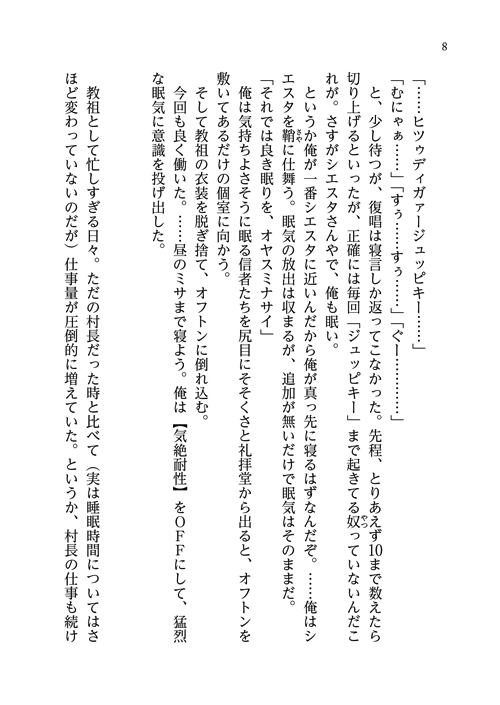 8
「……ヒツゥディガァージュッピキー……」
「むにゃぁ……」「すぅ……すぅ……」「ぐー…………」
　と、少し待つが、復唱は寝言しか返ってこなかった。先程、とりあえず10まで数えたら
切り上げるといったが、正確には毎回「ジュッピキー」まで起きてる奴っていないんだこ
れが。さすがシエスタさんやで、俺も眠い。
　というか俺が一番シエスタに近いんだから俺が真っ先に寝るはずなんだぞ。……俺はシ
エスタを鞘に仕舞う。眠気の放出は収まるが、追加が無いだけで眠気はそのままだ。
「それでは良き眠りを、オヤスミナサイ」
　俺は気持ちよさそうに眠る信者たちを尻目にそそくさと礼拝堂から出ると、オフトンを
敷いてあるだけの個室に向かう。
　そして教祖の衣装を脱ぎ捨て、オフトンに倒れ込む。
　今回も良く働いた。……昼のミサまで寝よう。俺は【気絶耐性】をＯＦＦにして、猛烈
な眠気に意識を投げ出した。
　教祖として忙しすぎる日々。ただの村長だった時と比べて（実は睡眠時間についてはさ
ほど変わっていないのだが）仕事量が圧倒的に増えていた。というか、村長の仕事も続け